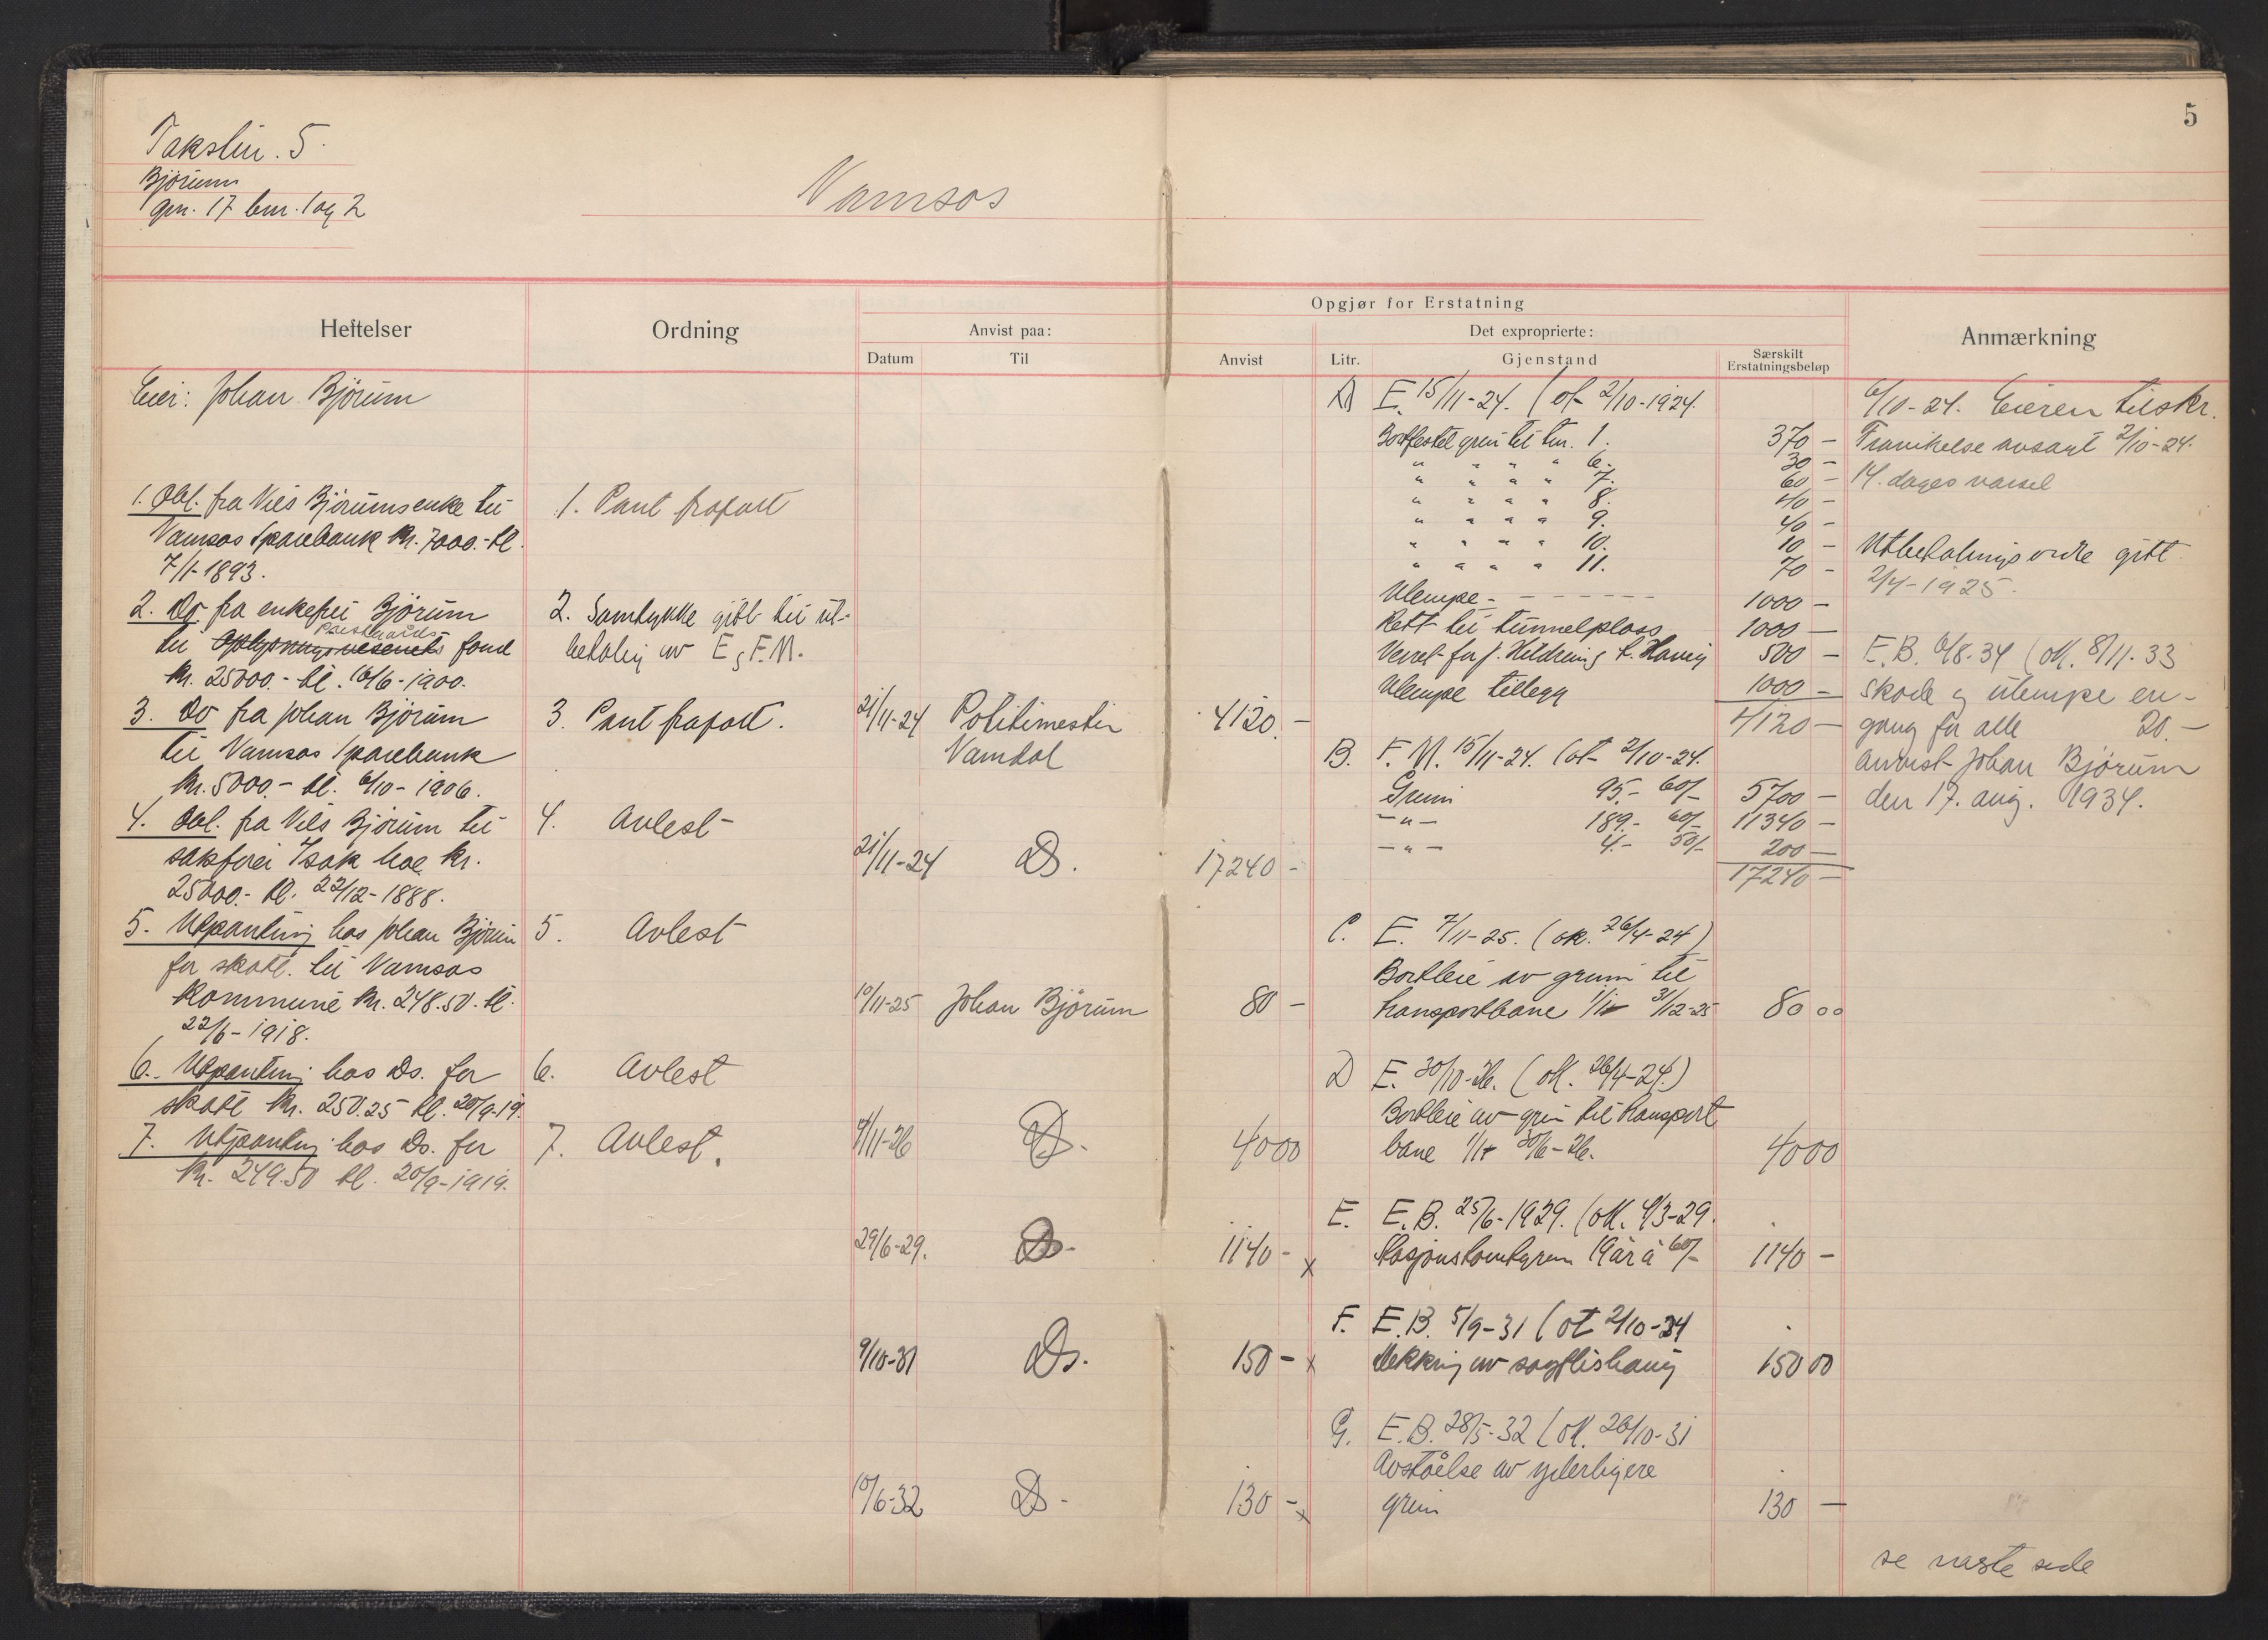 5
Takstnr. 5.
Bjørum
gnr. 17 bnr. 1 og 2
Namsos
Heftelser
Ordning
Opgjør for Erstatning
Anvist paa:
Datum
Til
Anvist
Det exproprierte:
Litr.
Gjenstand
Særskilt
Erstatningsbeløp
Anmærkning
Eier: Johan Bjørum
1. Obl. fra Nils Bjørums enke til
Namsos Sparebank kr. 7000.- tl.
7/1-1893.
2. Do fra enkefru Bjørum
til Oplysningsvesenets fond
kr. 25000.- tl. 16/6-1900.
3. Do fra Johan Bjørum
til Namsos Sparebank
kr. 5000.- tl. 6/10-1906.
4. Obl. fra Nils Bjørum til
sakfører Isak hoe kr.
25000.- tl. 22/12-1888.
5. Utpanting hos Johan Bjørum
for skatt. til Namsos
Kommune kr. 248.50. tl.
22/6-1918.
6. Utpanting hos Ds. for
skatt kr. 250.25 tl. 20/9-19.
7. Utpanting hos Ds. for
kr. 249.50 tl. 20/9-1919.
1. Pant frafalt
2. Samtykke gitt til ut-
betaling av E og F.M.
3. Pant frafalt.
4. Avlest
5. Avlest
6. Avlest
7. Avlest.
21/11-24 Politimester 4120.-
Namdal
21/11-24 Ds. 17240-
10/11-25 Johan Bjørum 80-
4/11-26 Ds. 4000
29/6-29. Ds. 1140- x
9/10-31 Ds. 150- x
10/6-32 Ds- 130- x
A E. 15/11-24. (ot 2/10-1924.
Bortfestet grun til tnr. 1. 370-
" " " " 6. 30-
" " " " 7. 60-
" " " " 8. 40-
" " " " 9. 40-
" " " " 10. 10-
" " " " 11. 70-
Ulempe - - - - - - - 1000-
Rett til tunnelplass 1000-
500-
Ulempe tillegg 1000-
4120-
B. F.M. 15/11-24. (ot 2/10-24.
Grunn 95.- 60/- 5700-
-"- 189.- 60/- 11340-
-"- 4.- 50/- 200-
17240-
C. E. 7/11-25. (ok. 26/4-24)
Bortleie av grunn til
transportbane 1/1- 31/12-25 80 00
D E. 30/10-26. (ok. 26/4-24.)
Bortleie av grun til transport
bane 1/1- 30/6-26. 4000
E. E.B. 25/6-1929. (ok. 4/3-29.
Stasjonstomtgrunn 19 ar à 60/- 1140-
F. E.B. 5/9-31 (ot 2/10-24
Dekking av sagflishaug 150 00
G. E.B. 28/5-32 (ok. 26/10-31
Avståelse av yderligere
grun 130 -
6/10-24. Eieren tilskr.
Fravikelse avsagt 2/10-24.
14. dages varsel
Utbetalingsordre gitt
2/4-1925.
E.B. 6/8-34 (ok. 8/11-33
skade og ulempe en-
gang for alle 20.-
anvist Johan Bjørum
den 17. aug. 1934.
se næste side